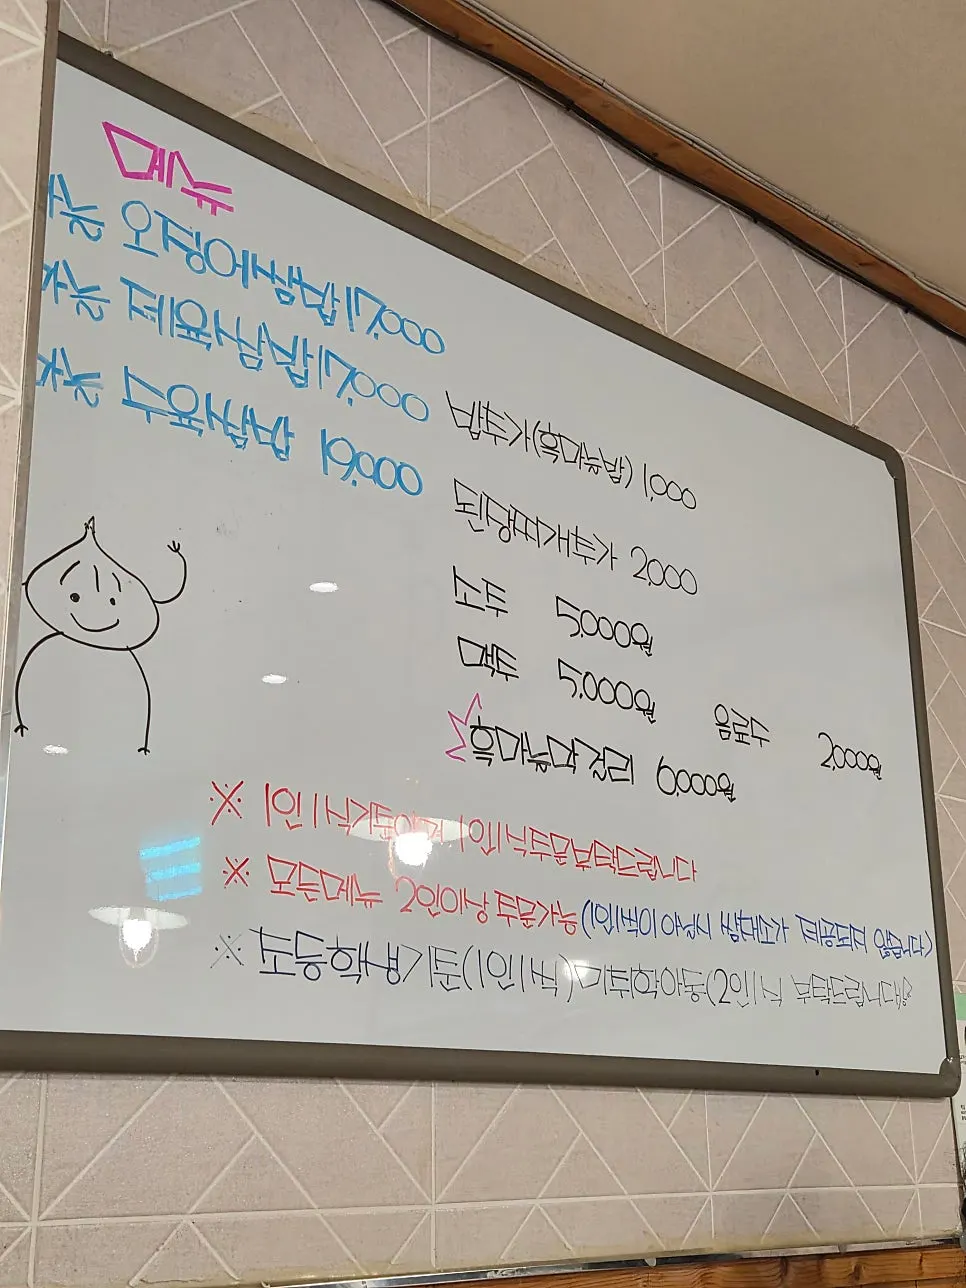 메뉴
오징어쌈밥 17,000
제육쌈밥 17,000
수육쌈밥 19,000
밥추가(흑마늘밥) 1,000
된장찌개추가 2,000
소주 5,000원
맥주 5,000원
음료수 2,000원
흑마늘막걸리 6,000원
※ 1인 1식기준이며 1인1식주문부탁드립니다
※ 모든메뉴 2인이상 주문가능 (1인1식이 아닐시 쌈채소가 제공되지 않습니다)
※ 초등학생기준(1인1식) 미취학아동(2인1식 부탁드립니다